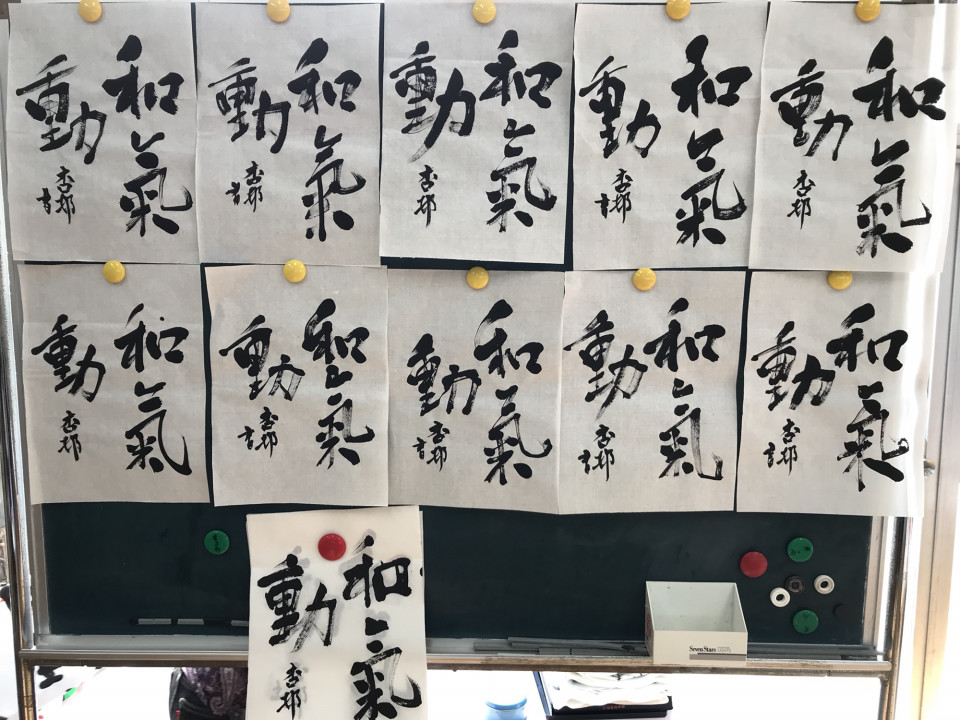 和氣
動
杏邨書
和氣
動
杏邨書
和氣
動
杏邨
和氣
動
杏邨書
和氣
動
杏邨
和氣
動
杏邨
和氣
動
杏邨書
和氣
動
杏邨書
和氣
動
杏邨書
和氣
動
杏邨書
和氣
動
杏邨
Seven Stars